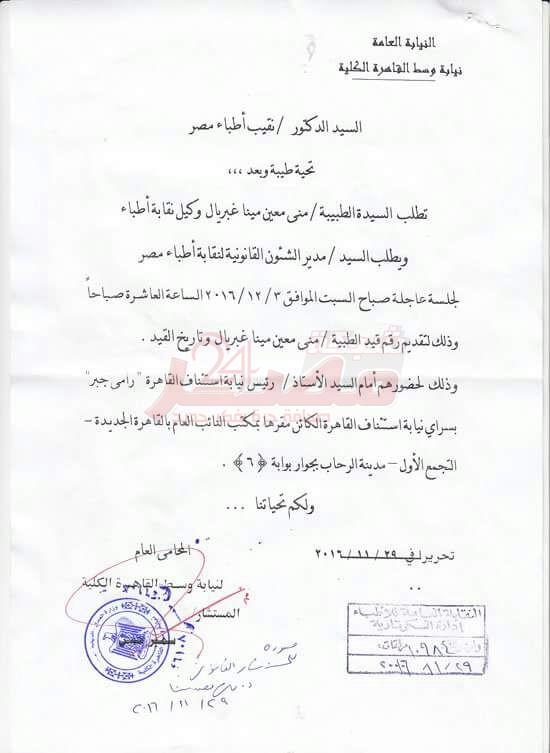 النيابة العامة
نيابة وسط القاهرة الكلية
السيد الدكتور / نقيب أطباء مصر
تحية طيبة وبعد ،،،
تطلب السيدة الطبيبة / منى معين مينا غبريال وكيل نقابة أطباء
ويطلب السيد / مدير الشئون القانونية لنقابة أطباء مصر
لجلسة عاجلة صباح السبت الموافق ٢٠١٦/١٢/٣ الساعة العاشرة صباحاً
وذلك لتقديم رقم قيد الطبية / منى معين مينا غبريال وتاريخ القيد .
وذلك لحضورهم أمام السيد الأستاذ / رئيس نيابة استئناف القاهرة "رامى جبر"
بسراي نيابة استئناف القاهرة الكائن مقرها بمكتب النائب العام بالقاهرة الجديدة –
التجمع الأول – مدينة الرحاب بجوار بوابة ﴿٦﴾ .
ولكم تحياتنا ...
تحريراً في ٢٩ / ١١ / ٢٠١٦
المحامى العام
لنيابة وسط القاهرة الكلية
المستشار /
النقابة العامة للأطباء
إدارة السكرتارية
صورة
٢٠١٦/١١/٢٩
شبكة
مصر 24